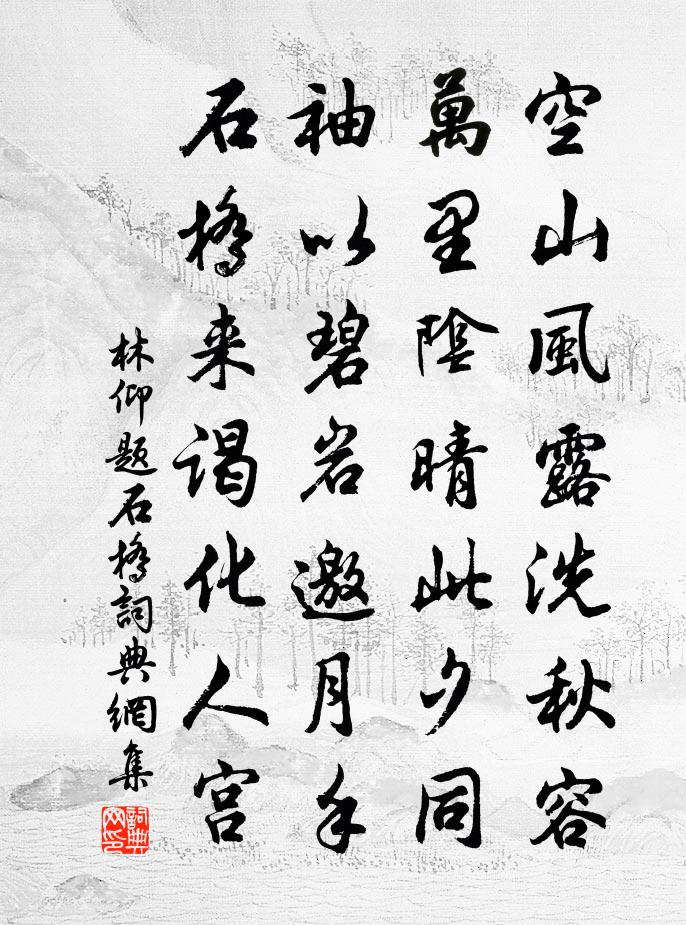 空山風露洗秋容
萬里陰晴此夕同
袖以碧岩邀月手
石橋来謁化人宫
林仰題石橋詞典網集
詞典
网印